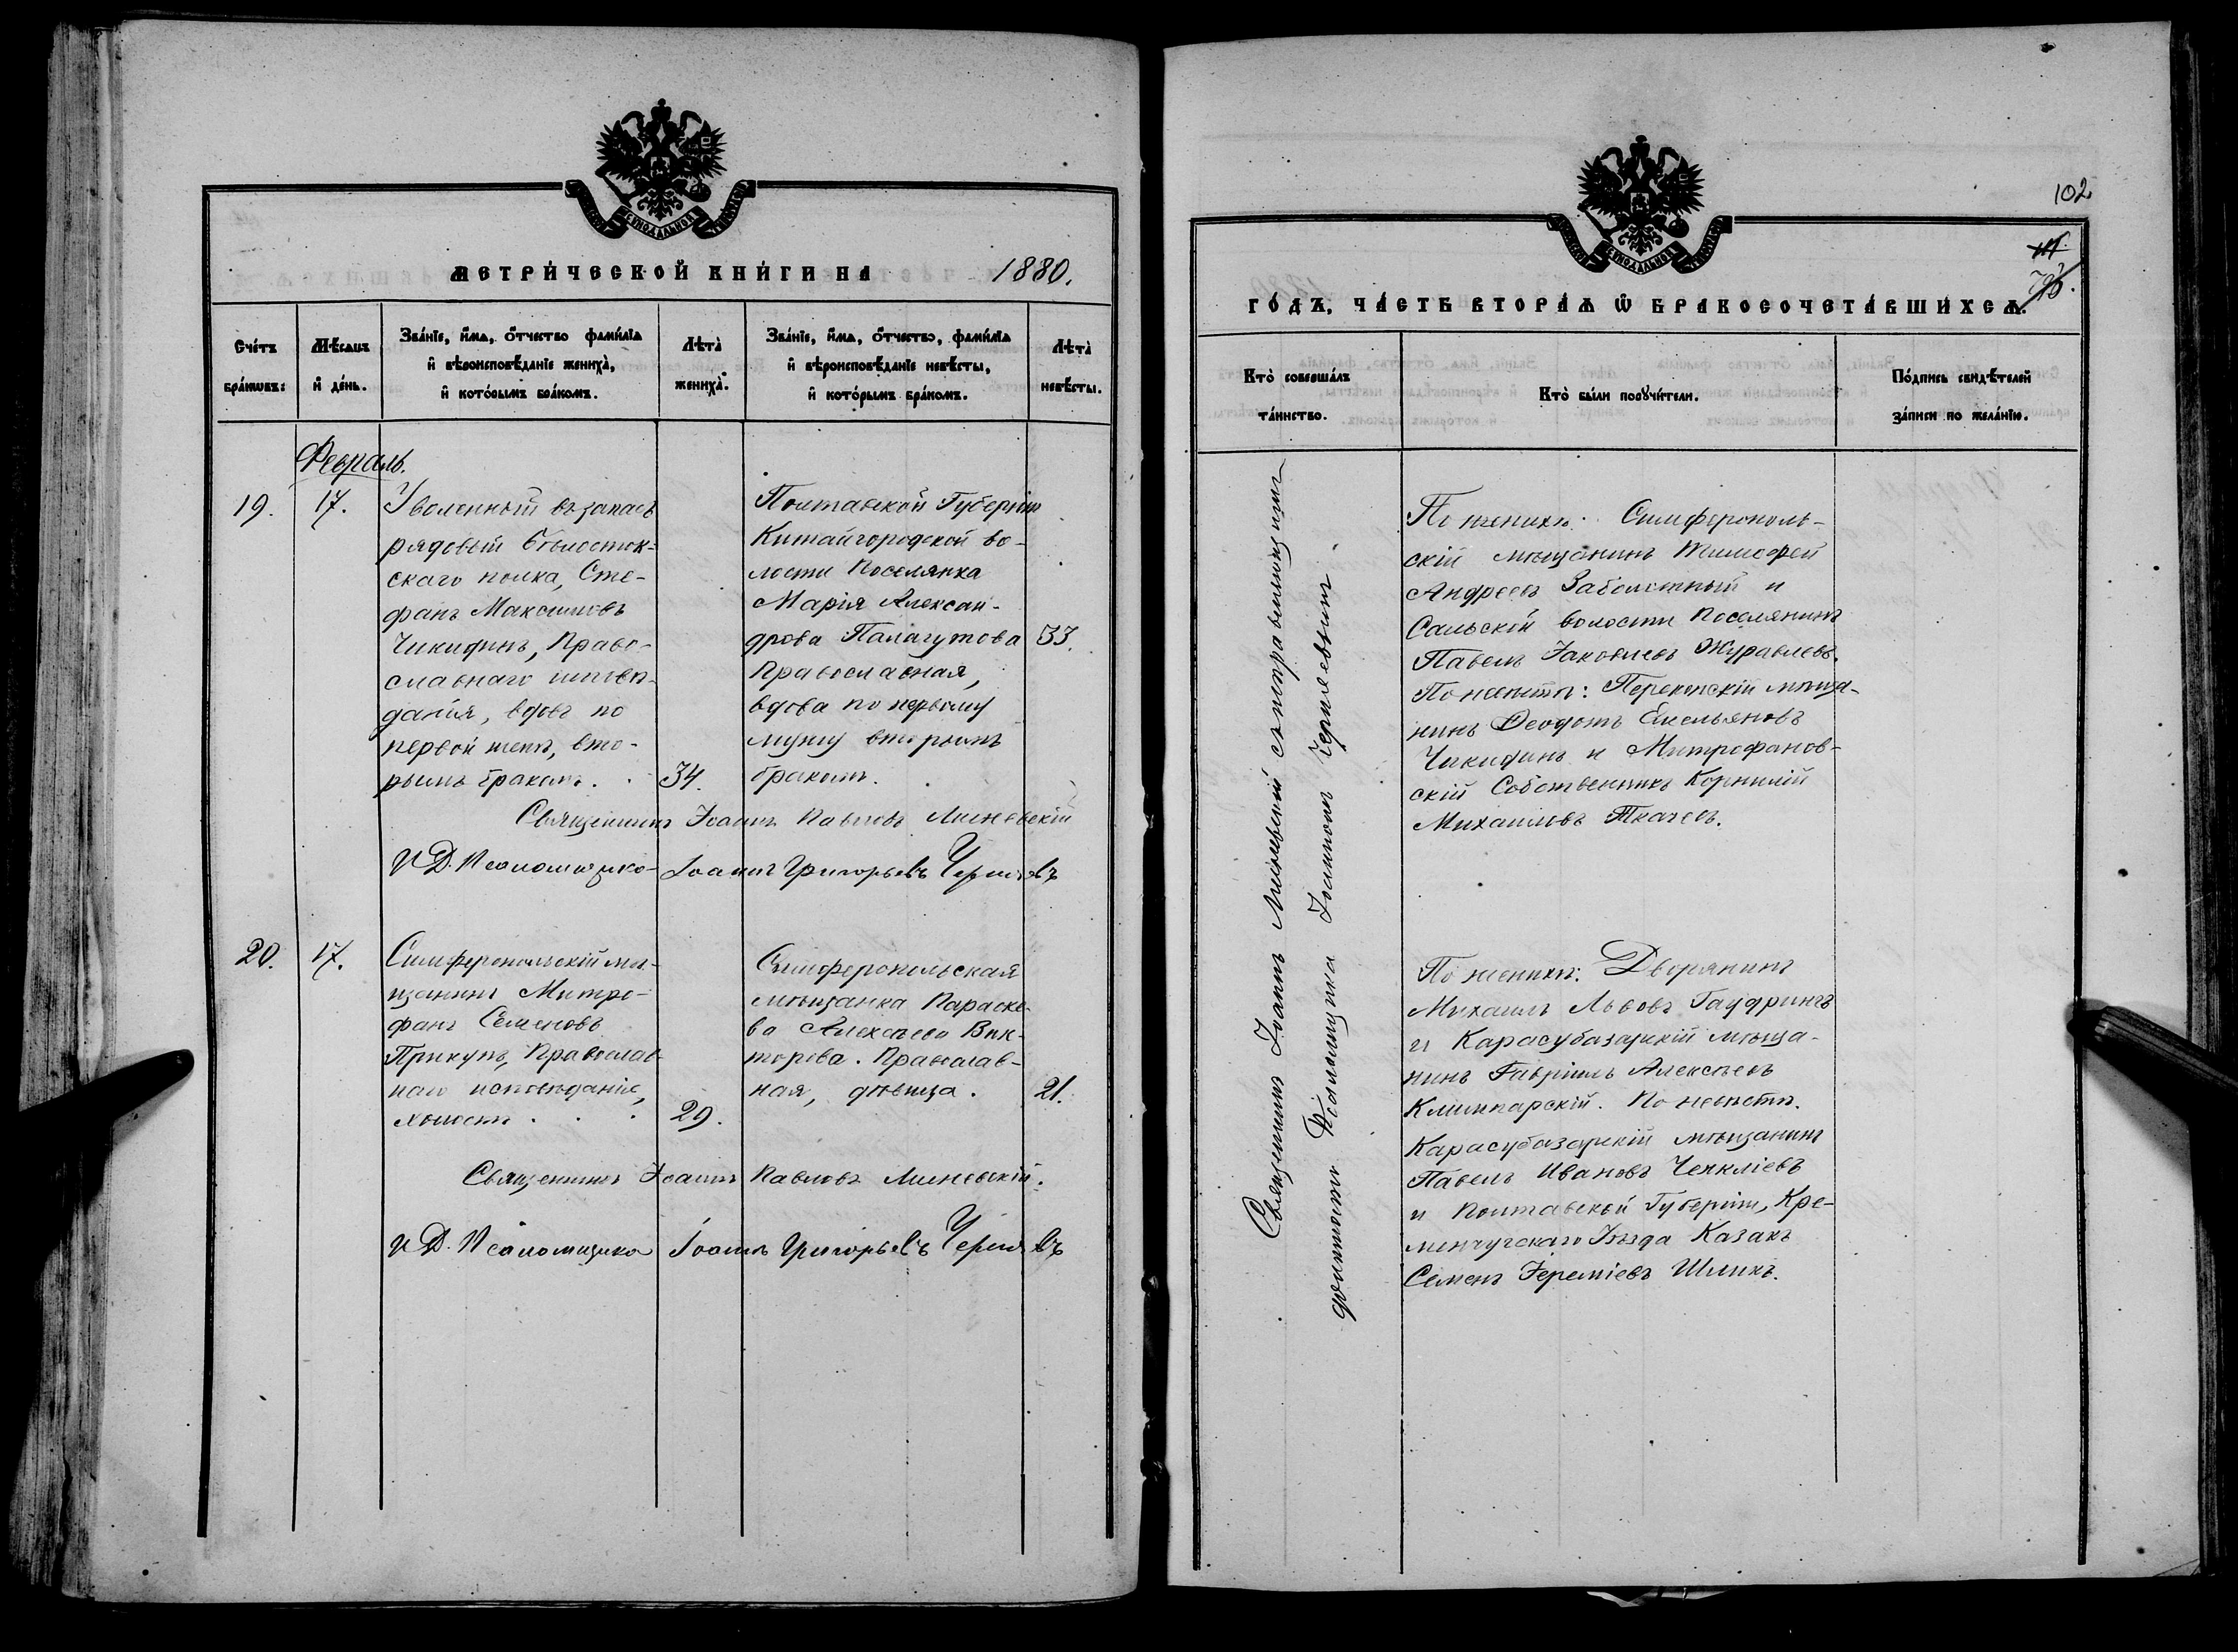 МЕТРИЧЕСКОЙ КНИГИ НА 1880.
Счетъ браковъ:
Мѣсяцъ и день.
Званіе, имя, отчество фамилія
и вѣроисповѣданіе жениха,
и которымъ бракомъ.
Лѣта жениха.
Званіе, имя, отчество, фамилія
и вѣроисповѣданіе невѣсты,
и которымъ бракомъ.
Лѣта невѣсты.
Февраль.
19.
17.
Уволенный въ запасъ
рядовый Бѣлосток-
скаго полка, Сте-
фанъ Максимовъ
Чикидинъ, Право-
славнаго исповѣ-
данія, вдовъ по
первой женѣ, вто-
рымъ бракомъ.
34.
Полтавской Губерніи
Китайгородской во-
лости Поселянка
Марія Алексан-
дрова Палагутова
Православная,
вдова по первому
мужу вторымъ
бракомъ.
33.
Священникъ Іоаннъ Павловъ Миневскій
И Д. Псаломщика Іоаннъ Григорьевъ
20.
17.
Симферопольскій мѣ-
щанинъ Митро-
фанъ Семеновъ
Прикупъ, Православ-
наго исповѣданія,
холостъ.
29.
Симферопольская
мѣщанка Параске-
ва Алексѣева Вик-
торова. Православ-
ная, дѣвица.
21.
Священникъ Іоаннъ Павловъ Миневскій.
И Д. Псаломщика Іоаннъ Григорьевъ
102
ГОДЪ, ЧАСТЬ ВТОРАЯ Ѿ БРАКОСОЧЕТАВШИХСЯ.
Кто совершалъ таинство.
Кто были поручители.
Подпись свидѣтелей
записи по желанію.
Священникъ Іоаннъ Миневскій съ исправляющимъ
должность Псаломщика Іоанномъ
По женихѣ: Симферополь-
скій мѣщанинъ Тимофей
Андреевъ Заболотный и
Сальской волости Поселянинъ
Павелъ Іаковлевъ Журавлевъ.
По невѣстѣ: Перекопскій мѣща-
нинъ Феодотъ Емельяновъ
Чикидинъ и Митрофанов-
скій Собственникъ Корнилій
Михаиловъ Ткачевъ.
По женихѣ: Дворянинъ
Михаилъ Львовъ Гаудрингъ
и Карасубазарскій мѣща-
нинъ Гавріилъ Алексѣевъ
По невѣстѣ.
Карасубазарскій мѣщанинъ
Павелъ Ивановъ
и Полтавской Губерніи, Кре-
менчугскаго Уѣзда Казакъ
Семенъ Іереміевъ Шликъ.